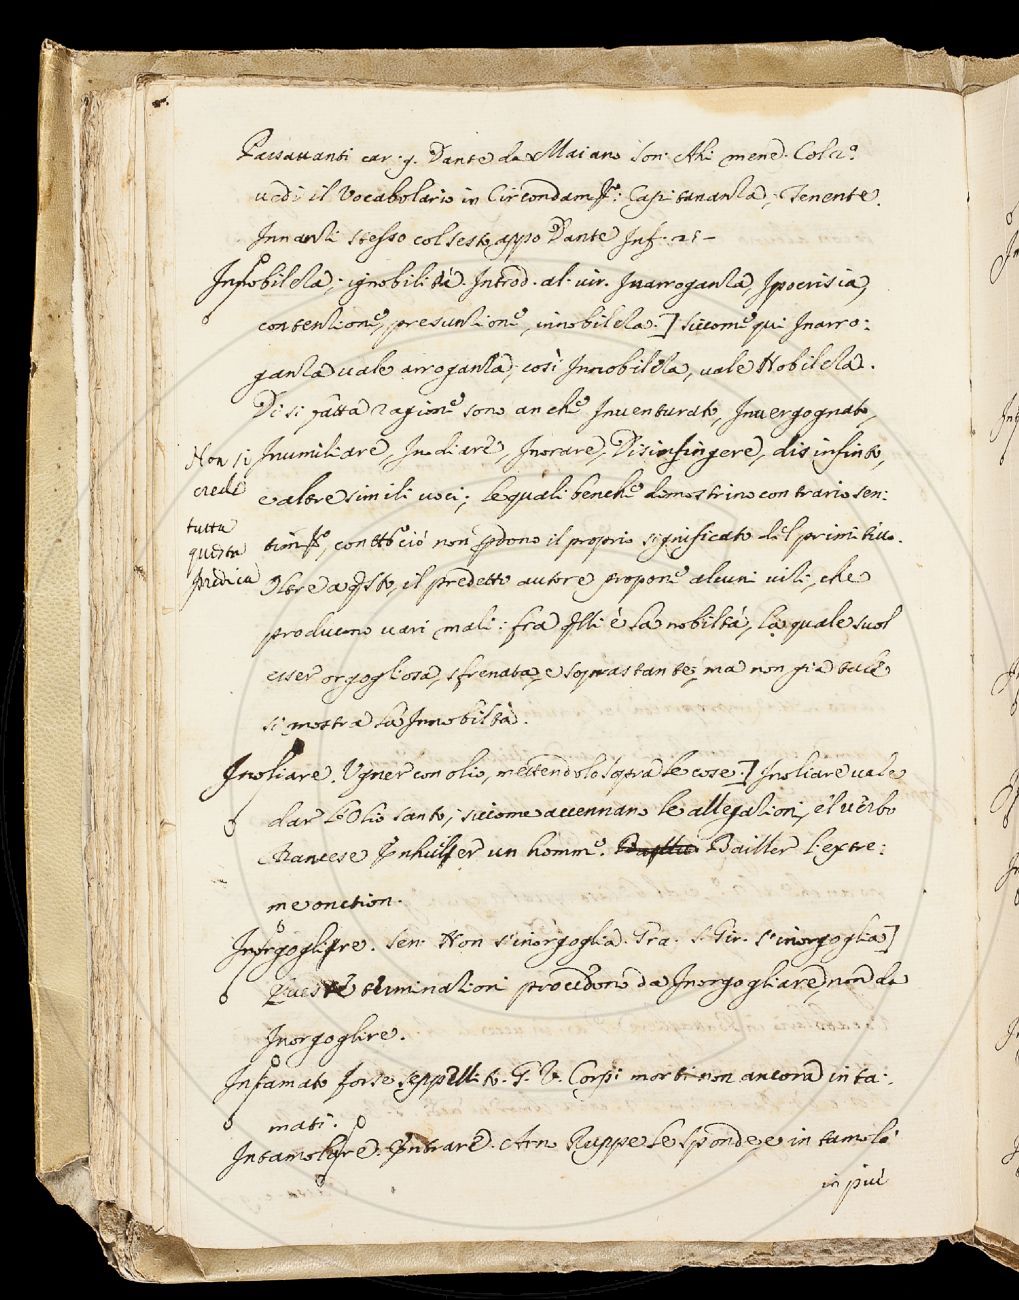 Passavanti car. 9. Dante da Maiano son. Ahi mend. Colz.º
vedi il Vocabolario in Circondam.to: Capitananza, Tenente.
Innanzi stesso col sesto appo Dante Inf. 21 -
Innobilezza, ignobilità. Introd. al. vir. Inarroganza, Ipocrisia,
contenzione, presunzione, innobilezza.] siccome qui Inarro:
ganza vale arroganza, così Innobilezza, vale Nobilezza.
Di sì fatta ragione sono anche Inventurato, Invergognato,
Inumiliare, Inodiare, Inorare, Disinfingere, disinfinto,
e altre simili voci; le quali benche dimostrino contrario sen:
tim.to, con tutto ciò non perdono il proprio significato del primitivo.
Oltre a questo, il predetto autore propone alcuni vizi, che
producono vari mali: fra quelli è la nobiltà, la quale suol
esser orgogliosa, sfrenata, e soprastante; ma non già tale
si mostra la Innobiltà.
Non si
crede
tutta
questa
predica
Inoliare. Ugner con olio, mettendolo sopra le cose.] Inoliare vale
dar l'Olio santo; siccome accennano le allegazioni, e'l verbo
Francese Enhuiler un homme. Bailler l'extre:
me onction.
Inorgoglire. Sen. Non s'inorgoglia. Fra. S. Gir. s'inorgoglia]
Queste terminazioni procedono da Inorgogliare, non da
Inorgoglire.
Intamato forse seppellito. G. V. Corpi morti non ancora inta:
mati.
Intamolare. Entrare. Arno Ruppe le sponde, e intamolò
in più